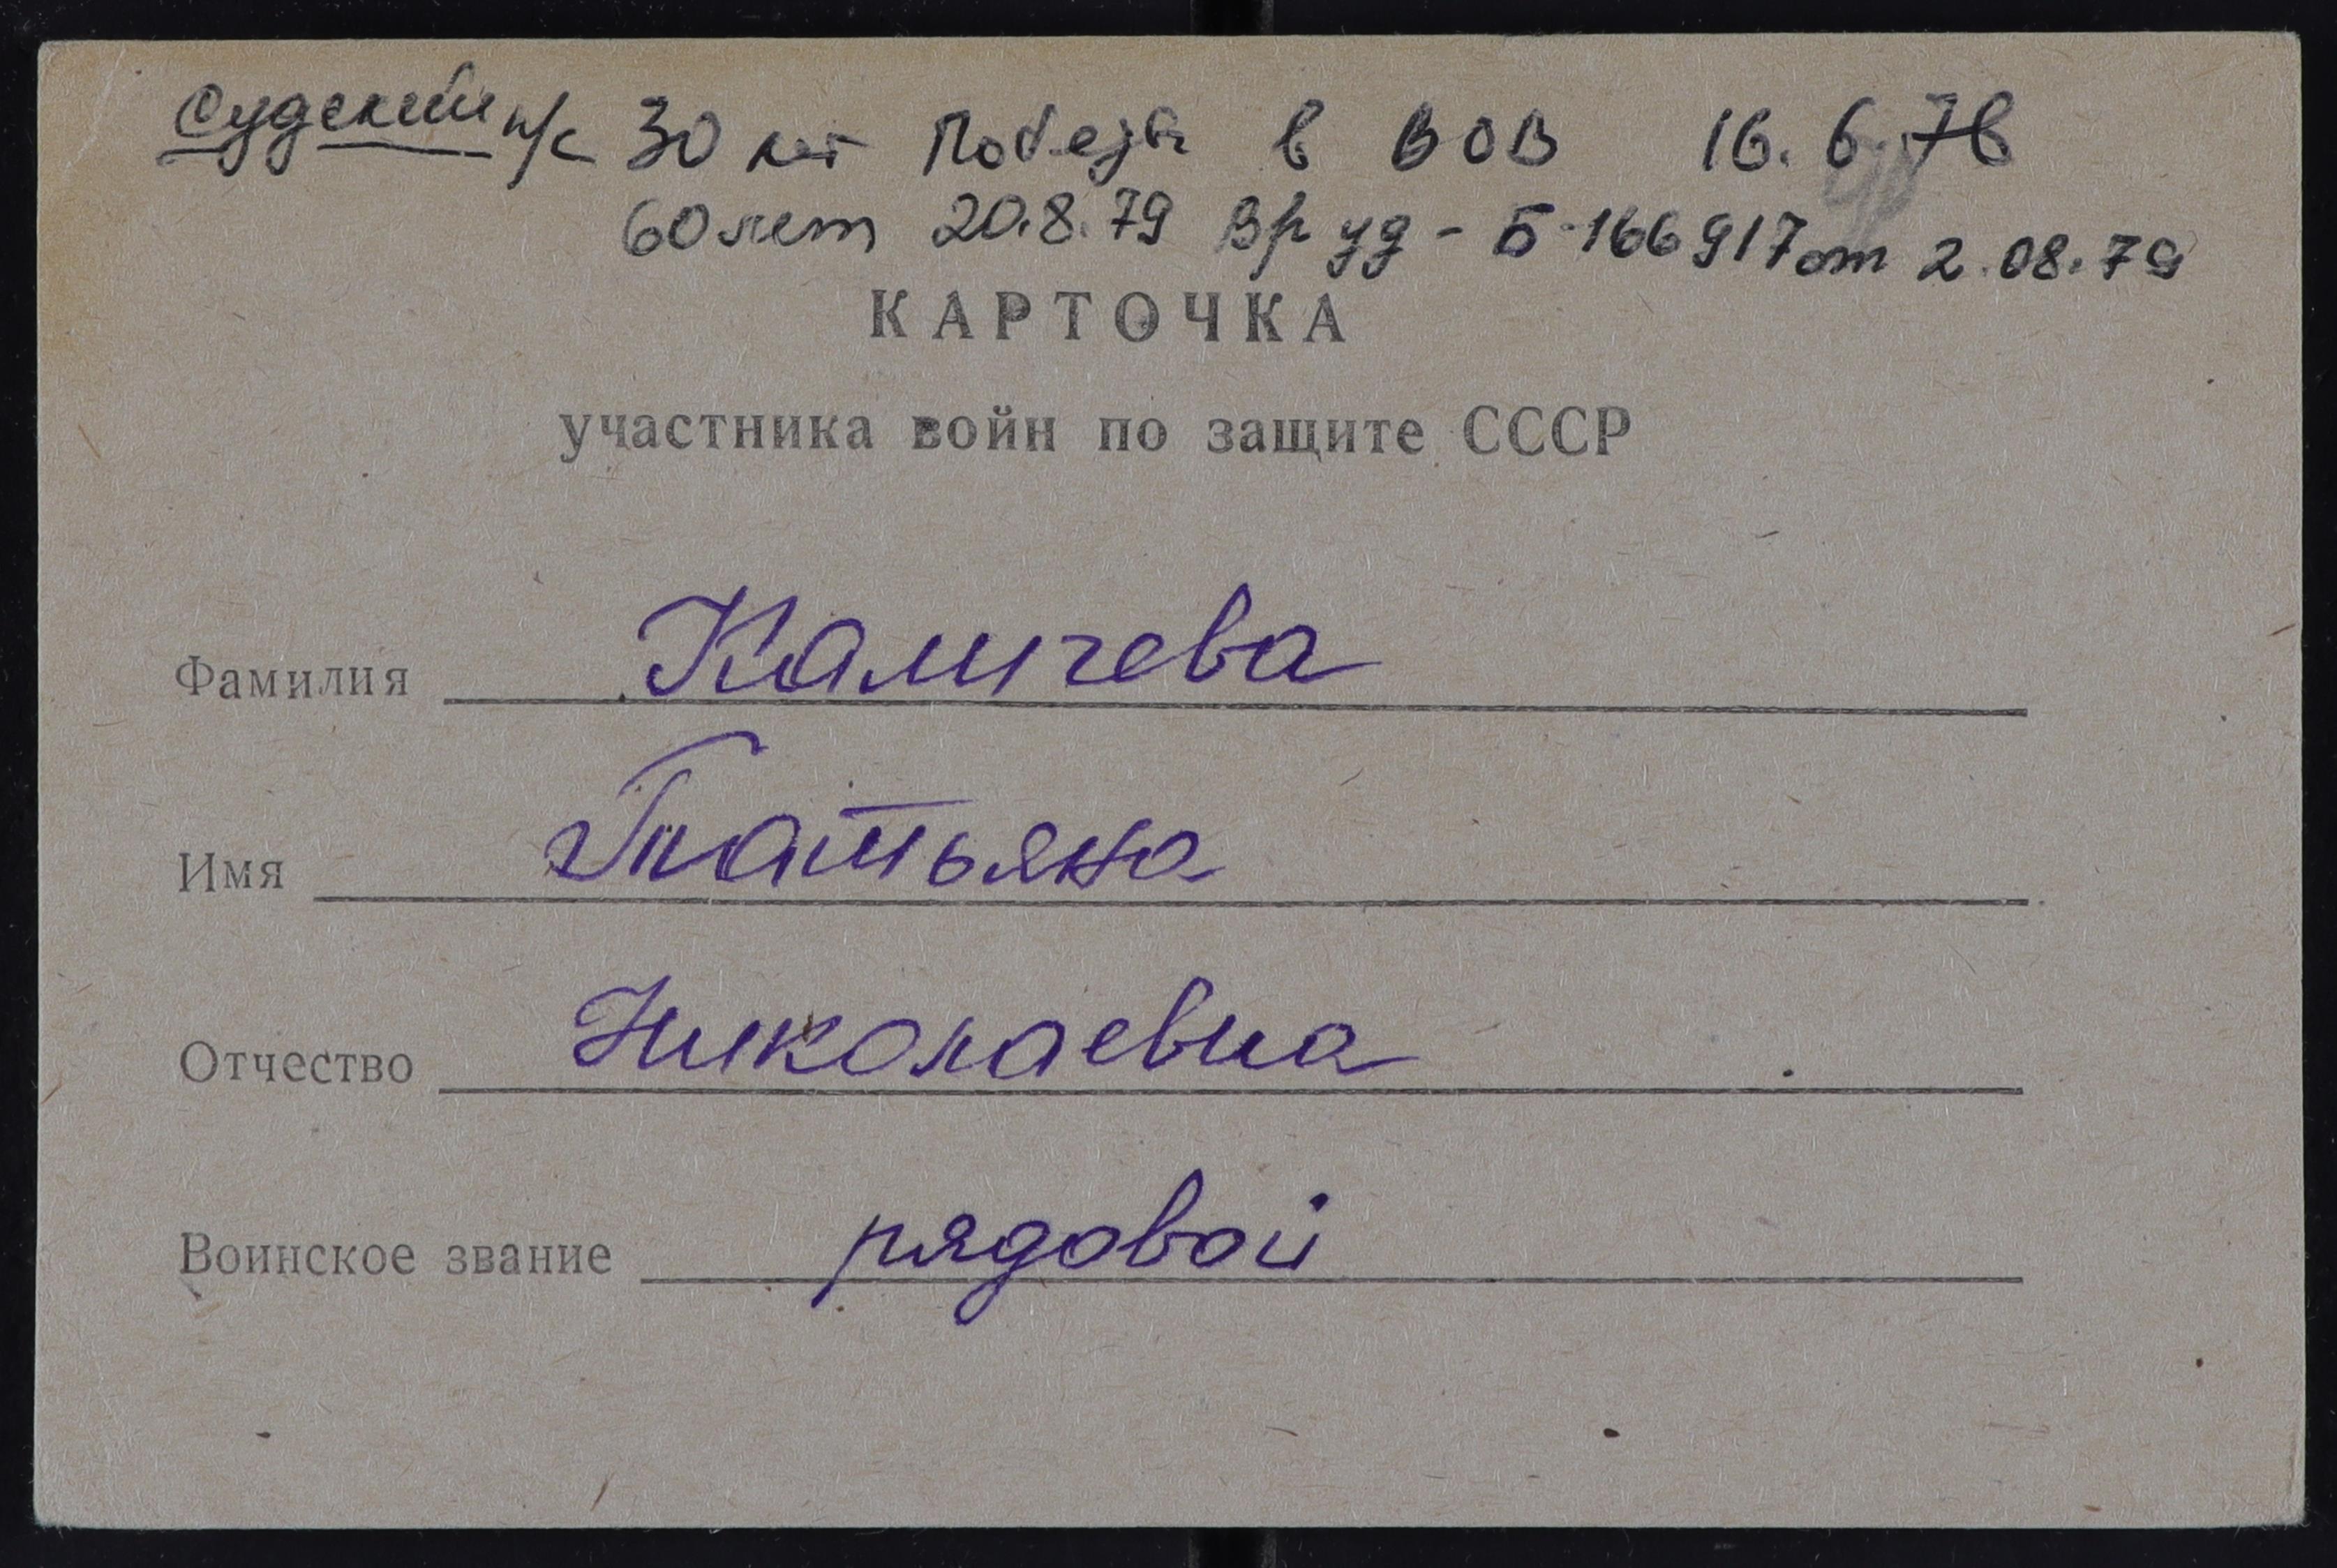 Судский п/с 30 лет Победы в ВОВ 16. 6. 76
60 лет 20.8.79 Вр уд - Б-166917 от 2.08.79
КАРТОЧКА
участника войн по защите СССР
Фамилия Каличева
Имя Татьяна
Отчество Николаевна
Воинское звание рядовой